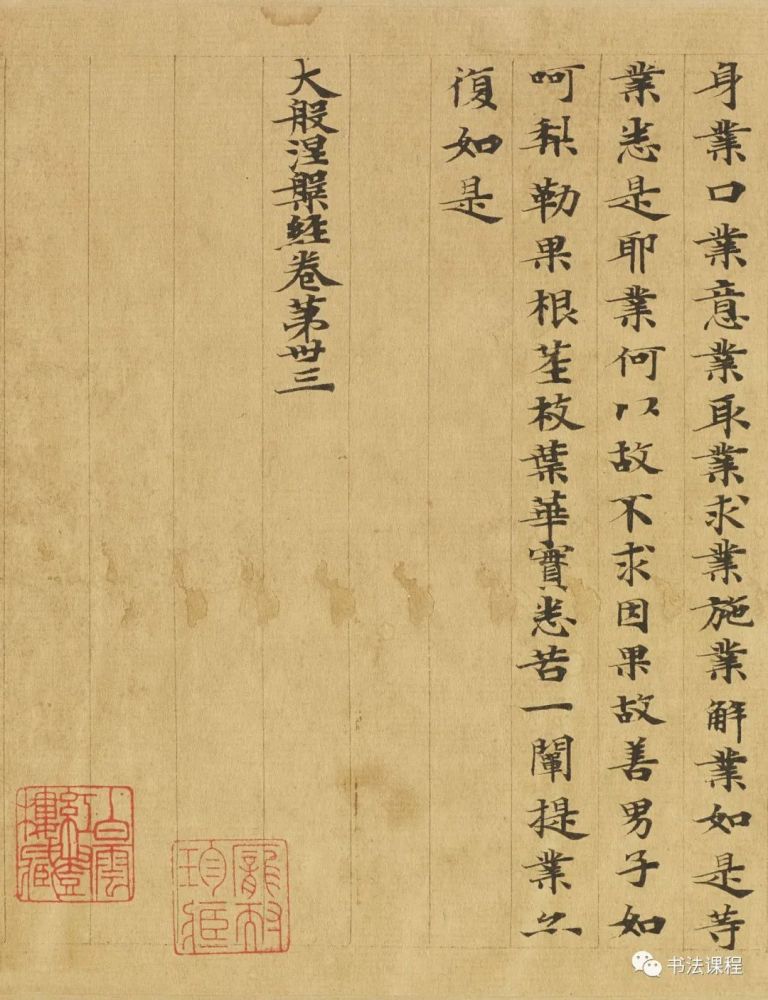 身業口業意業取業求業施業解業如是等
業悉是耶業何以故不求因果故善男子如
呵梨勒果根莖枝葉華實悉苦一闡提業亦
復如是
大般涅槃經卷第卅三
书法课程